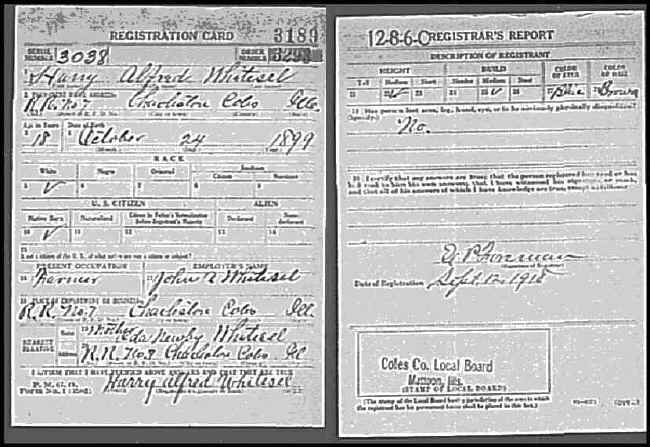 REGISTRATION CARD 3189
SERIAL NUMBER 3038 ORDER NUMBER
1 Harry Alfred Whitesel
2 PERMANENT HOME ADDRESS:
R.R. No 7 Charleston Coles Ills.
Age in Years Date of Birth
18 October 24 1899
RACE
White Negro Oriental Indian
Citizen
5 ✓ 6 7 8 9
U. S. CITIZEN ALIEN
Native Born Naturalized Citizen by Father's Naturalization Before Registrant's Majority Declarant Non-declarant
10 ✓ 11 12 13 14
15
If not a citizen of the U. S., of what nation are you a citizen or subject?
PRESENT OCCUPATION EMPLOYER'S NAME
16 Farmer 17 John A Whitesel
18 PLACE OF EMPLOYMENT OR BUSINESS:
R.R. No. 7 Charleston Coles Ill.
NEAREST RELATIVE
Name 19 Mother
Ida Newby Whitesel
Address 20 R.R. No. 7 Charleston Coles Ill
I AFFIRM THAT I HAVE VERIFIED ABOVE ANSWERS AND THAT THEY ARE TRUE
P. M. G. O.
Form No. 1 (Red)
Harry Alfred Whitesel
12-8-6-C REGISTRAR'S REPORT
DESCRIPTION OF REGISTRANT
HEIGHT BUILD COLOR OF EYES COLOR OF HAIR
Tall Medium Short Slender Medium Stout
21 22 ✓ 23 24 25 ✓ 26 27 Blue 28 Brown
29 Has person lost arm, leg, hand, eye, or is he obviously physically disqualified?
(Specify.)
No.
30 I certify that my answers are true; that the person registered has read or has had read to him his own answers; that I have witnessed his signature or mark, and that all of his answers of which I have knowledge are true, except as follows:
Date of Registration Sept. 12, 1918
Coles Co. Local Board
Mattoon, Ills.
(STAMP OF LOCAL BOARD)
(The stamp of the Local Board having jurisdiction of the area in which
the registrant has his permanent home shall be placed in this box.)